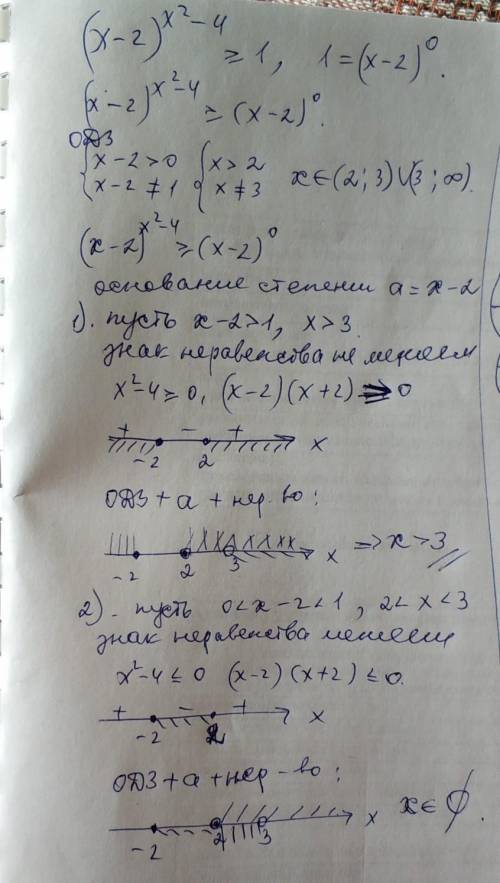 (x-2)^{x²-4} ≥ 1, 1=(x-2)^0.
(x-2)^{x²-4} ≥ (x-2)^0.
ОДЗ
{x-2>0 {x>2 x∈(2;3)∪(3;∞).
{x-2≠1 {x≠3
(x-2)^{x²-4} ≥ (x-2)^0
основание степени a=x-2
1). пусть x-2>1, x>3.
знак неравенства не меняем
x²-4≥0, (x-2)(x+2)≥0
+ - +
-2 2 x
ОДЗ+a+нер-во:
-2 2 3 x => x>3
2). пусть 0<x-2<1, 2<x<3
знак неравенства меняем
x²-4≤0 (x-2)(x+2)≤0.
+ - +
-2 2 x
ОДЗ+a+нер-во:
-2 2 3 x x∈∅.